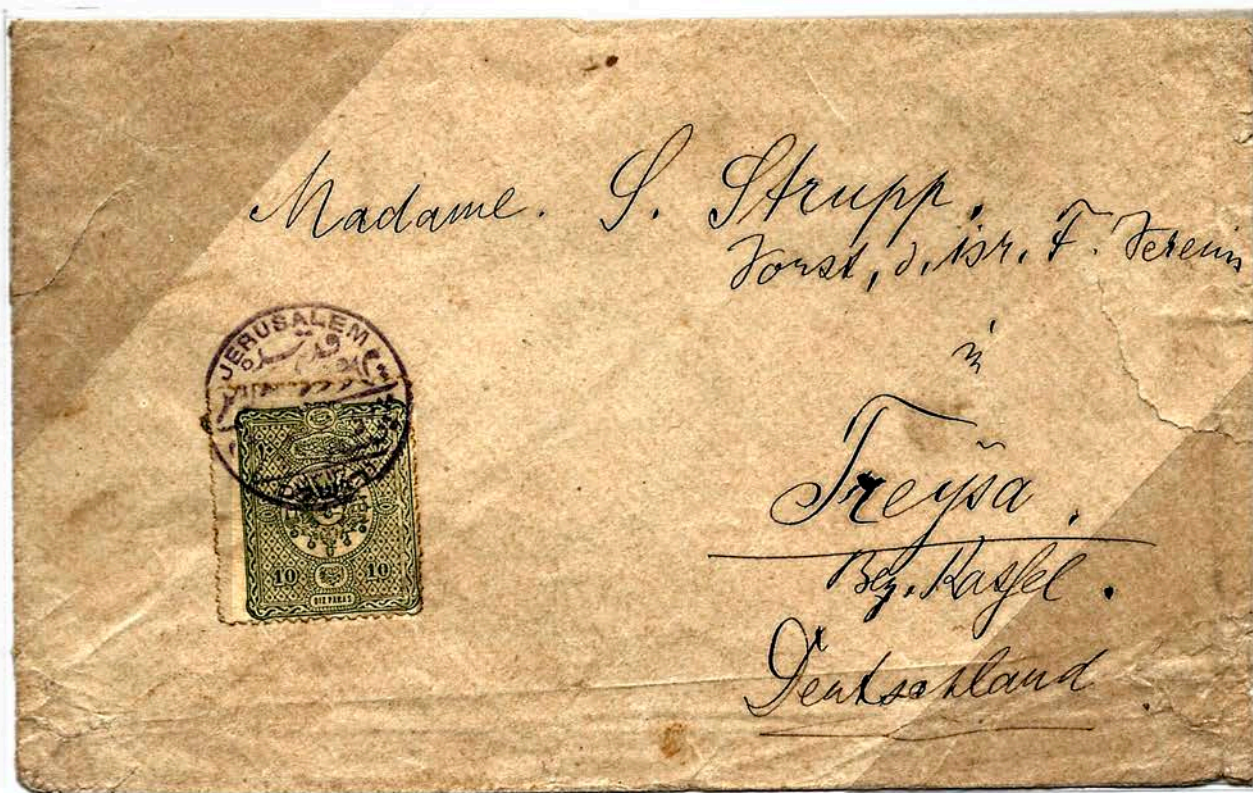 Madame. S. Strupp.
Vorst. d. isr. F. Verein
in
Treÿsa.
Bez. Kassel.
Deutschland
JERUSALEM
10 10
DIX PARAS